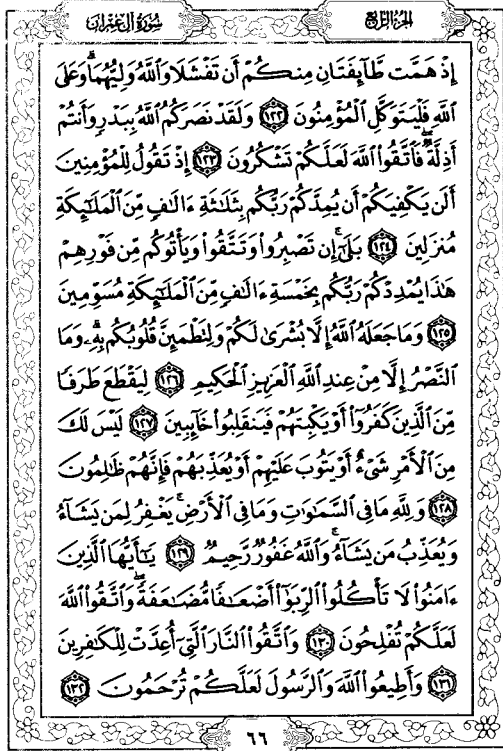 سُورَةُ آلِ عِمْرَانَ
الجُزْءُ الرَّابِعُ
إِذْ هَمَّت طَّآئِفَتَانِ مِنكُمْ أَن تَفْشَلَا وَٱللَّهُ وَلِيُّهُمَا ۗ وَعَلَى
ٱللَّهِ فَلْيَتَوَكَّلِ ٱلْمُؤْمِنُونَ ١٢٢ وَلَقَدْ نَصَرَكُمُ ٱللَّهُ بِبَدْرٍ وَأَنتُمْ
أَذِلَّةٌ ۖ فَٱتَّقُوا۟ ٱللَّهَ لَعَلَّكُمْ تَشْكُرُونَ ١٢٣ إِذْ تَقُولُ لِلْمُؤْمِنِينَ
أَلَن يَكْفِيَكُمْ أَن يُمِدَّكُمْ رَبُّكُم بِثَلَـٰثَةِ ءَالَـٰفٍ مِّنَ ٱلْمَلَـٰٓئِكَةِ
مُنزَلِينَ ١٢٤ بَلَىٰٓ ۚ إِن تَصْبِرُوا۟ وَتَتَّقُوا۟ وَيَأْتُوكُم مِّن فَوْرِهِمْ
هَـٰذَا يُمْدِدْكُمْ رَبُّكُم بِخَمْسَةِ ءَالَـٰفٍ مِّنَ ٱلْمَلَـٰٓئِكَةِ مُسَوِّمِينَ
١٢٥ وَمَا جَعَلَهُ ٱللَّهُ إِلَّا بُشْرَىٰ لَكُمْ وَلِتَطْمَئِنَّ قُلُوبُكُم بِهِۦ ۗ وَمَا
ٱلنَّصْرُ إِلَّا مِنْ عِندِ ٱللَّهِ ٱلْعَزِيزِ ٱلْحَكِيمِ ١٢٦ لِيَقْطَعَ طَرَفًا
مِّنَ ٱلَّذِينَ كَفَرُوٓا۟ أَوْ يَكْبِتَهُمْ فَيَنقَلِبُوا۟ خَآئِبِينَ ١٢٧ لَيْسَ لَكَ
مِنَ ٱلْأَمْرِ شَىْءٌ أَوْ يَتُوبَ عَلَيْهِمْ أَوْ يُعَذِّبَهُمْ فَإِنَّهُمْ ظَـٰلِمُونَ
١٢٨ وَلِلَّهِ مَا فِى ٱلسَّمَـٰوَٰتِ وَمَا فِى ٱلْأَرْضِ ۚ يَغْفِرُ لِمَن يَشَآءُ
وَيُعَذِّبُ مَن يَشَآءُ ۚ وَٱللَّهُ غَفُورٌ رَّحِيمٌ ١٢٩ يَـٰٓأَيُّهَا ٱلَّذِينَ
ءَامَنُوا۟ لَا تَأْكُلُوا۟ ٱلرِّبَوٰٓا۟ أَضْعَـٰفًا مُّضَـٰعَفَةً ۖ وَٱتَّقُوا۟ ٱللَّهَ
لَعَلَّكُمْ تُفْلِحُونَ ١٣٠ وَٱتَّقُوا۟ ٱلنَّارَ ٱلَّتِىٓ أُعِدَّتْ لِلْكَـٰفِرِينَ
١٣١ وَأَطِيعُوا۟ ٱللَّهَ وَٱلرَّسُولَ لَعَلَّكُمْ تُرْحَمُونَ ١٣٢
٦٦